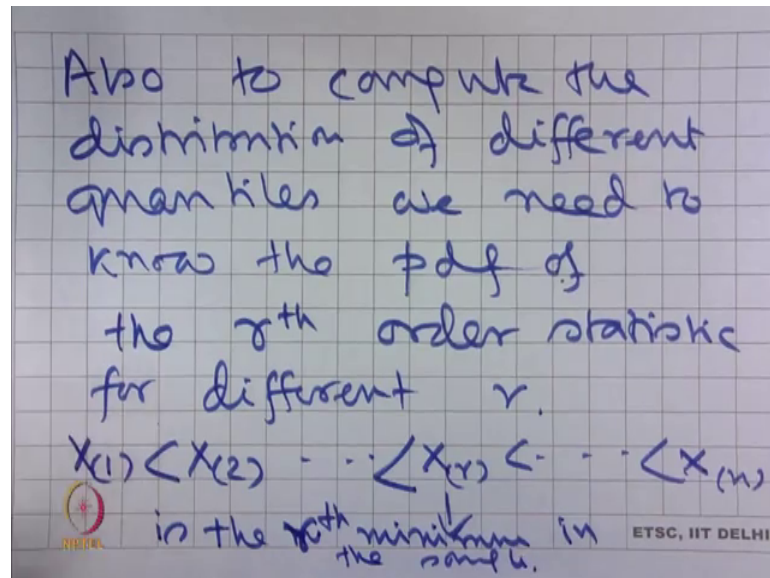 Also to compute the
distribution of different
quantiles we need to
know the pdf of
the rth order statistic
for different r.
X(1) < X(2) ... < X(r) < ... < X(n)
is the rth minimum in
the sample.
NPTEL
ETSC, IIT DELHI